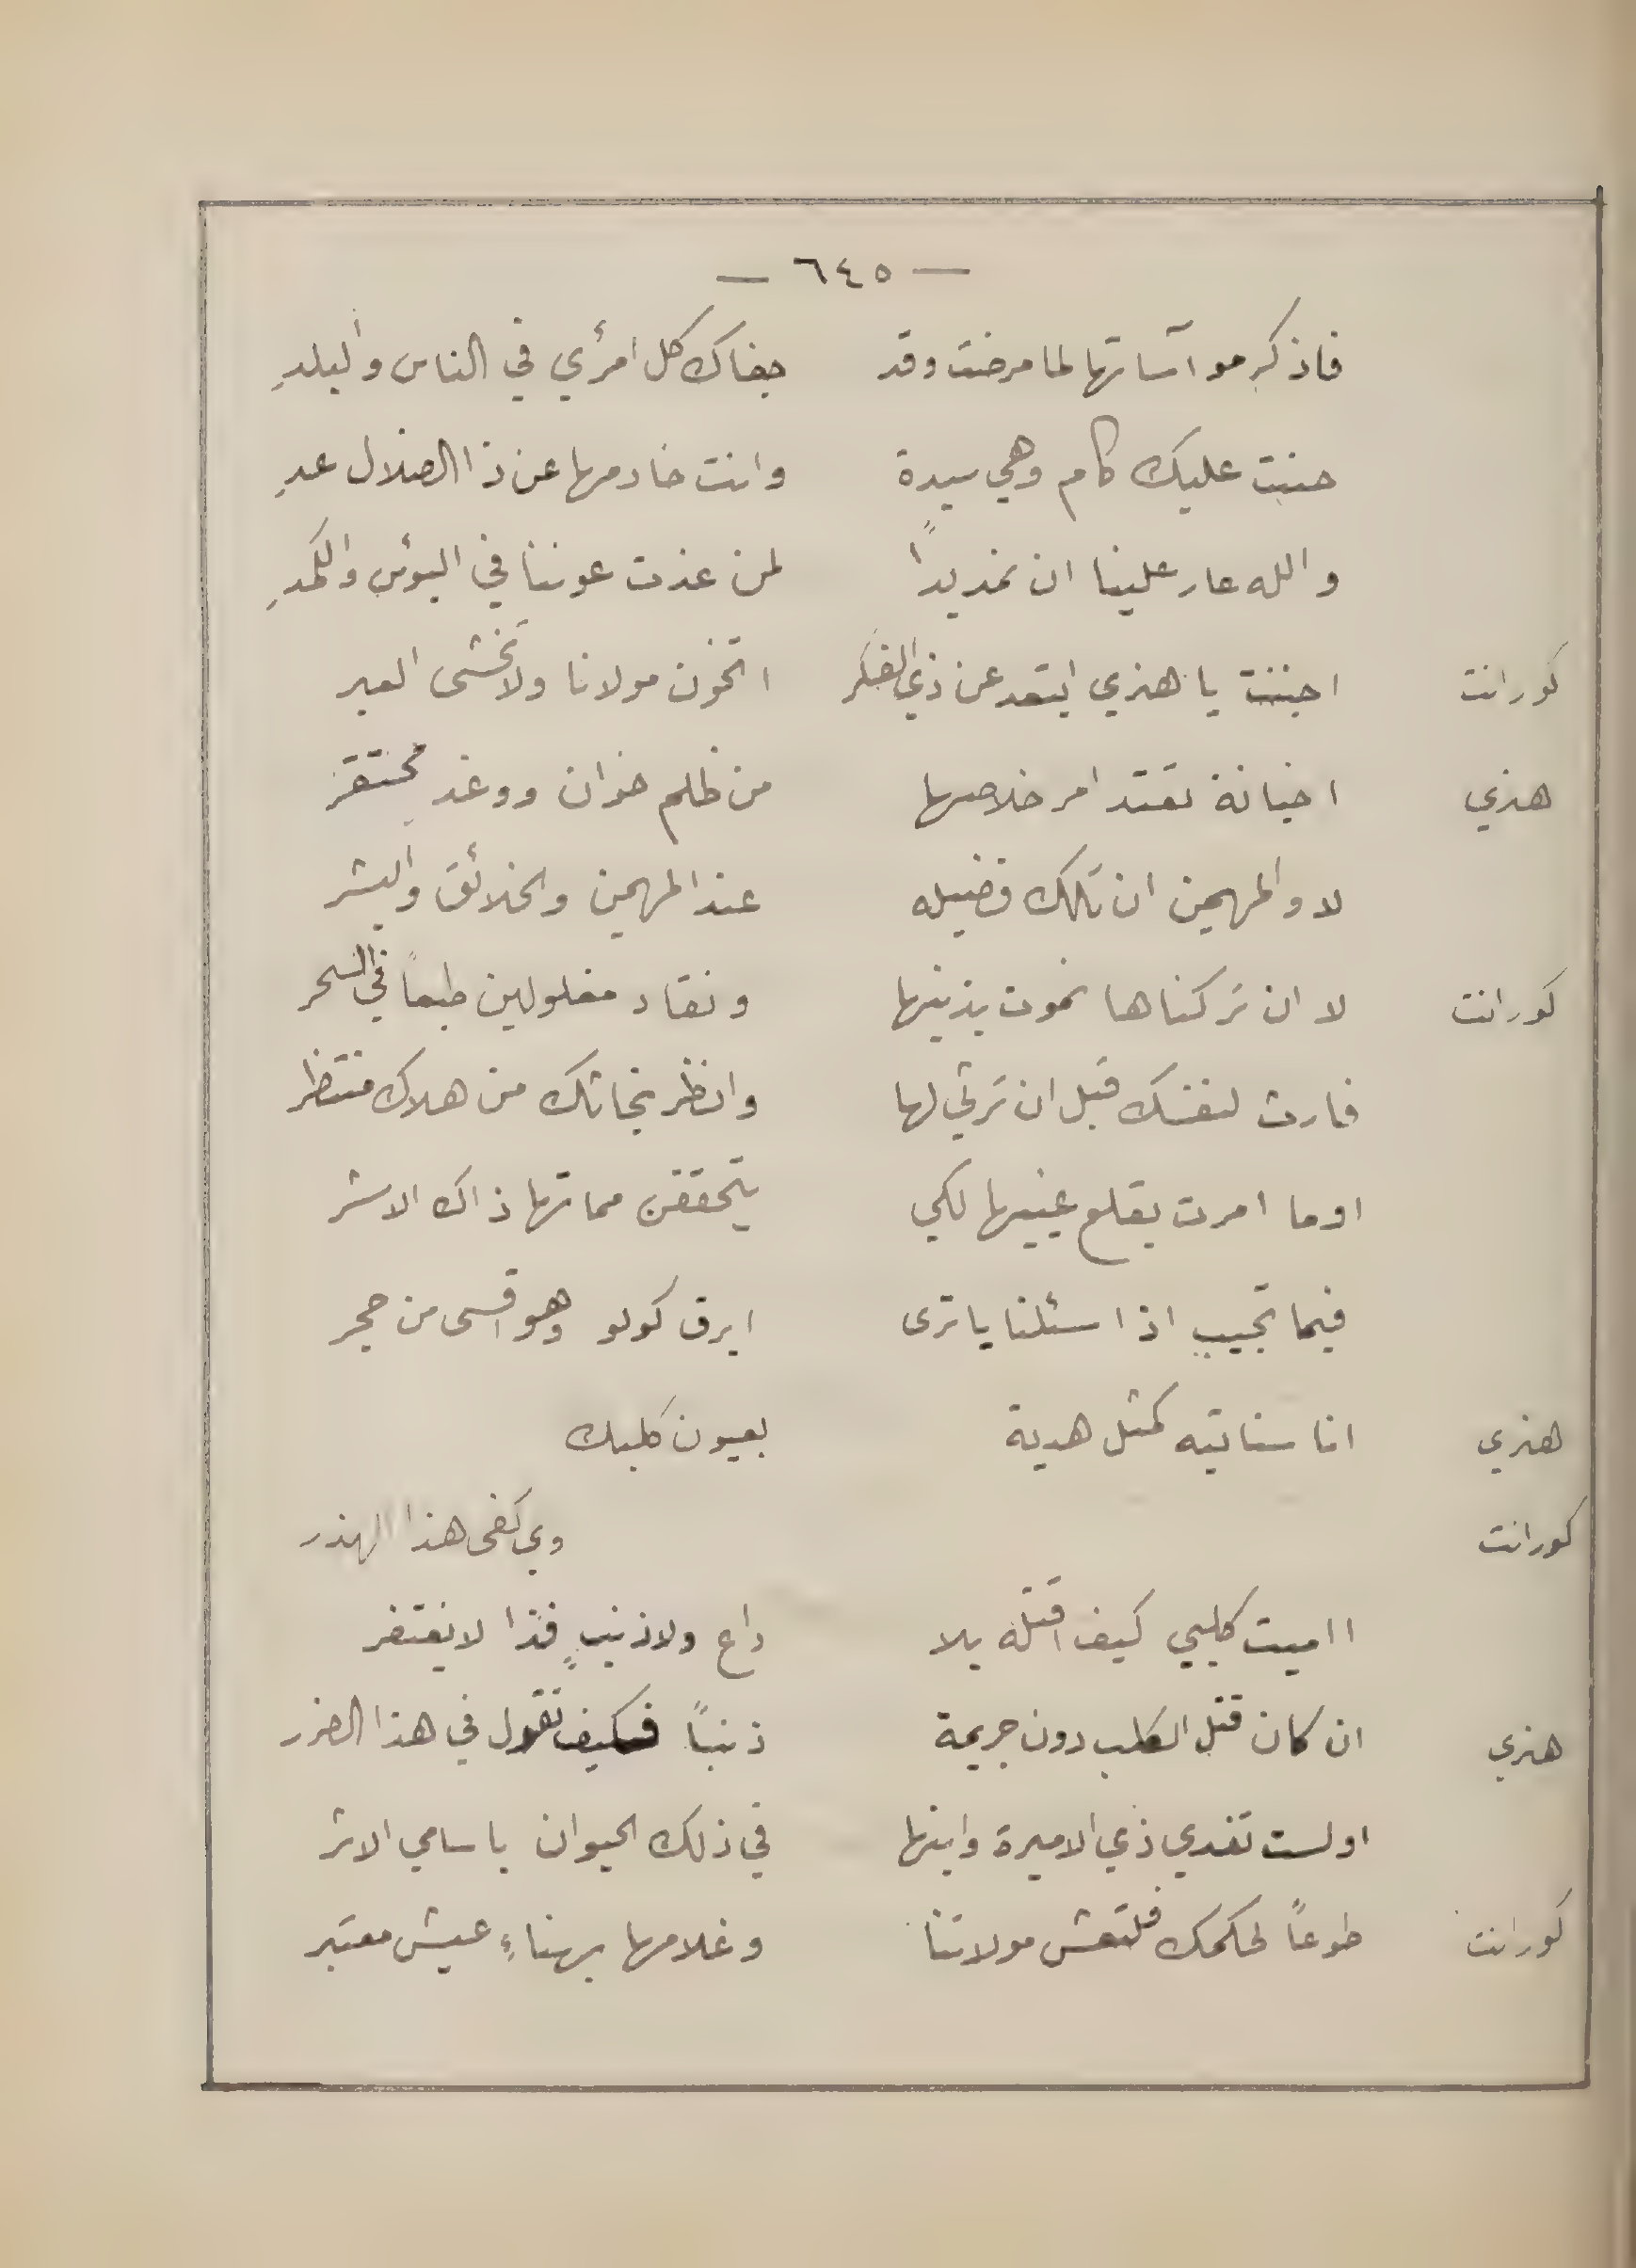 — ٦٤٥ —
فاذكر موآساتها لما مرضت وقد جفاك كل امرأي في الناس والبلدِ
حنت عليك كام وهي سيدة وانت خادمها عن ذا الضلال عدِ
والله عار علينا ان نمد يداً لمن غدت عوننا في البؤس والكمدِ
كورانت اجننت يا هنري ابتعد عن ذي الفكر اتخون مولانا ولا تخشى العبر
هنري اخيانة تعتد امر خلاصها من ظلم خوان ووغد محتقر
لا والمهيمن ان تلك فضيله عند المهيمن والخلائق والبشر
كورانت لا ان تركناها نموت بذنبها ونقاد مغلولين طبعاً في السحر
فارث لنفسك قبل ان ترثي لها وانظر نجاتك من هلاك منتظر
اوما امرت بقلع عينيها لكي يتحققن مماتها ذاك الاشر
فيما تجيب اذا سئلنا يا ترى ايرق كولو وهو اقسى من حجر
هنري انا سناتيه كمثل هدية بعيون كلبك
كورانت وي كفى هذا الهذر
ااميت كلبي كيف اقتله بلا داع ولا ذنبٍ فذا لا يغتفر
هنري ان كان قتل الكلب دون جريمة ذنباً فكيف تقول في هذا الضرر
اولست تفدي ذي الاميرة وابنها في ذلك الحيوان يا سامي الاثر
كورانت طوعاً لحكمك فلتعش مولاتنا وغلامها بهناءِ عيش معتبر